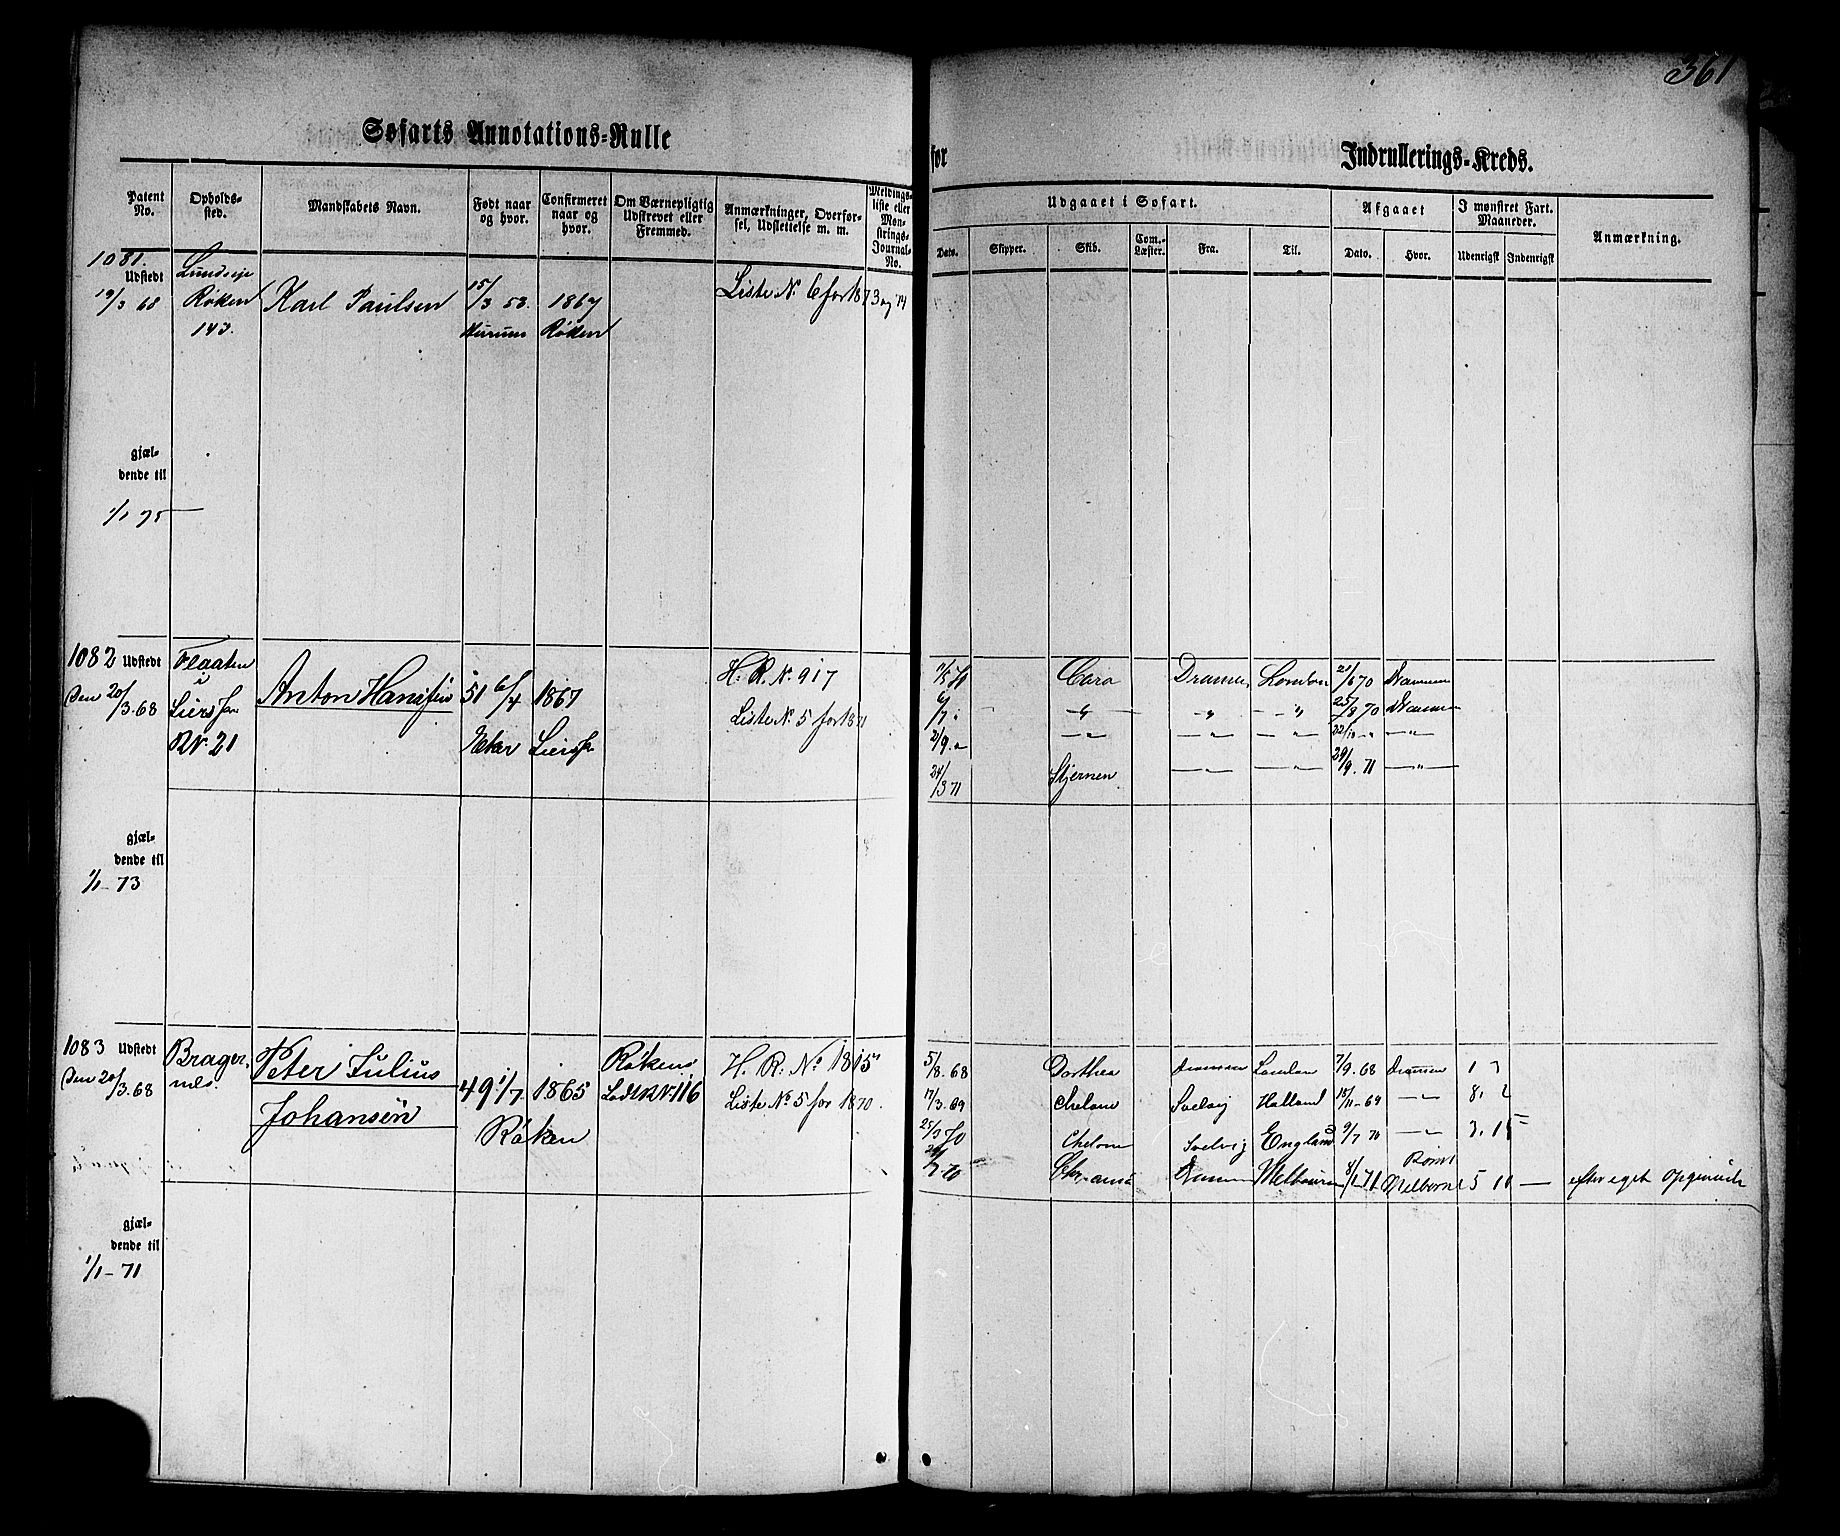 361
Søfarts Annotations-Rulle
for Indrullerings-Kreds.
Patent No. Opholds-sted. Mandskabets Navn. Født naar og hvor. Confirmeret naar og hvor. Om Værnepligtig Udskrevet eller Fremmed. Anmærkninger, Overførsel, Udslettelse m. m. Meldingsliste eller Mønstrings-Journal-No.
Udgaaet i Søfart. Afgaaet I mønstret Fart. Maaneder. Anmærkning.
Dato. Skipper. Skib. Com.-Læster. Fra. Til. Dato. Hvor. Udenrigsk Indenrigsk
1081.
Udstedt
19/3 68
Røken
143.
Karl Paulsen
15/3 53.
Hurum
1867
Røken
Liste N. 6 for 1873 og 74
gjæl-
dende til
1/1 75
1082 Udstedt
Den 20/3.68
Flaaten
i
Lier
RN. 21
Anton Hansen
51 6/4
Eker
1867
Lier
H. R. N. 917
Liste N. 5 for 1871
Cara Drammen London 21/6 70 Drammen
6/7 " — " — " — " 25/8 70 Drammen
2/9 " — " — " — " 22/10 " — "
24/3 71 Stjernen — " — " 29/9. 71 — "
gjæl-
dende til
1/1 - 73
1083 Udstedt
Den 20/3.68
Brager-
nes.
Peter Julius
Johansen
49 1/7
1865
Røken
Røkens
H. R. No 1815
Liste No. 5 for 1870.
5/8.68 Dorthea Drammen London 7/9.68 Drammen 1
17/3.69 Svelvig Holland — " 8. 2
25/3 70 Svelvig England 9/7 70 — " 3. 15
Drammen Melbourne 8/1 71 Rømt Melborne 5 11 — efter eget Opgivende
gjæl-
dende til
1/1 - 71